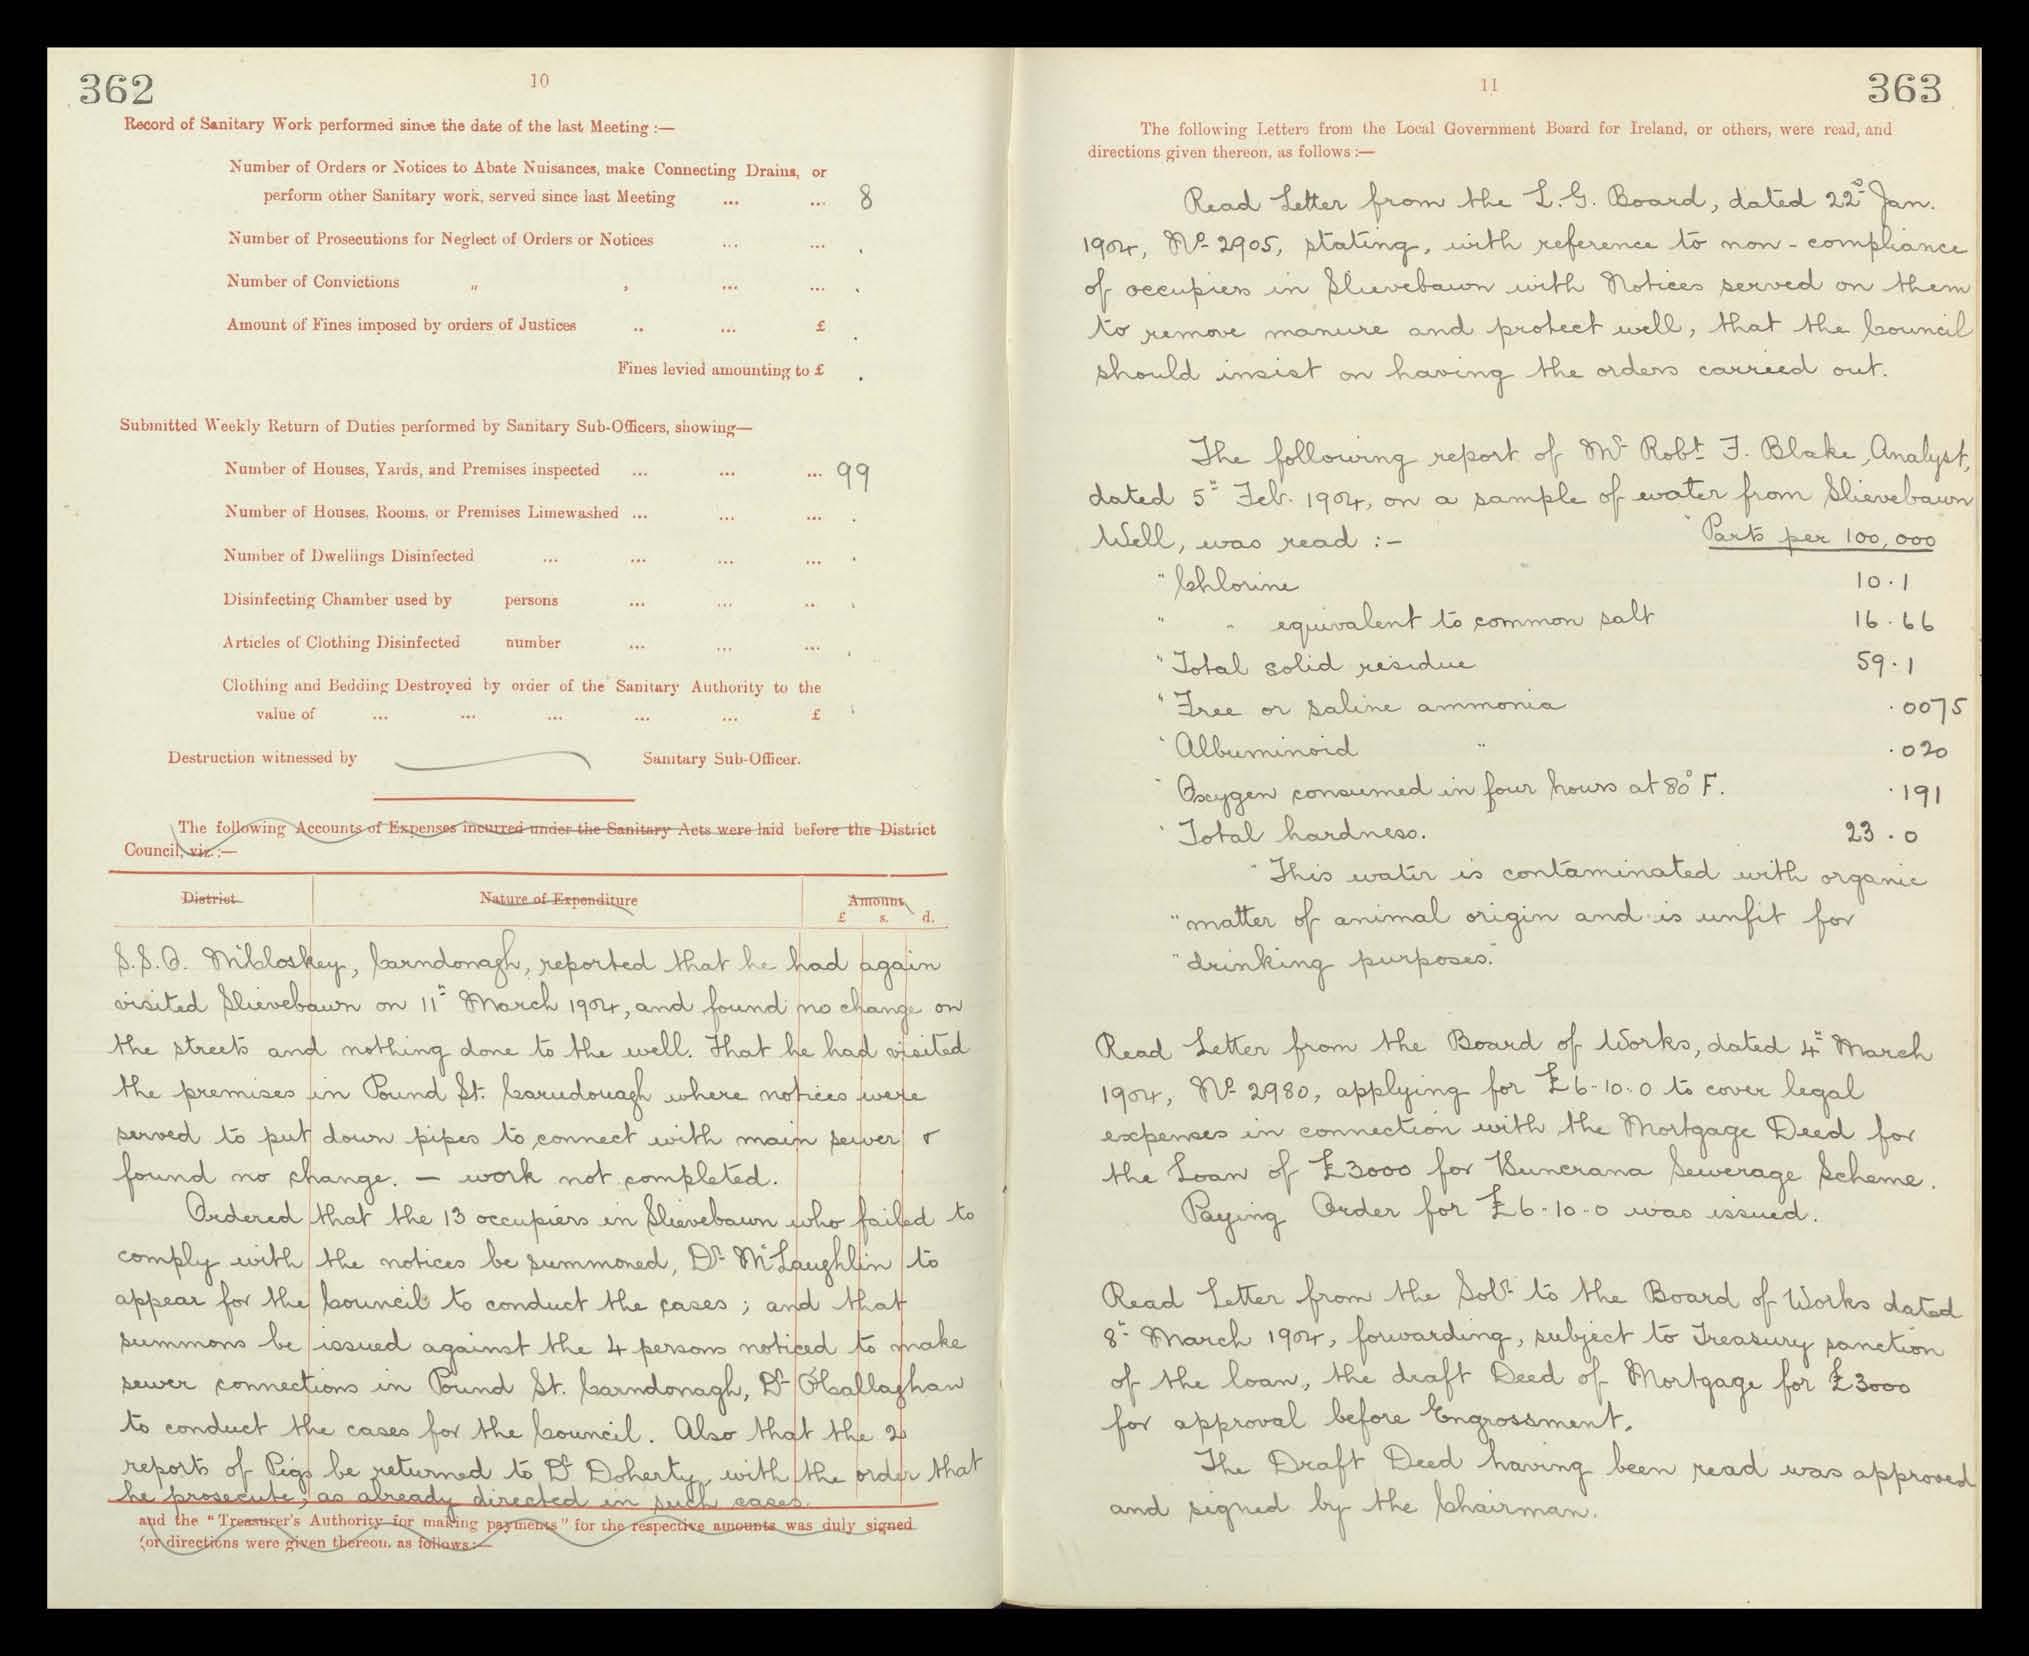 362
10
Record of Sanitary Work performed since the date of the last Meeting :—
Number of Orders or Notices to Abate Nuisances, make Connecting Drains, or
perform other Sanitary work, served since last Meeting ... ... 8
Number of Prosecutions for Neglect of Orders or Notices ... ... .
Number of Convictions „ , ... ... .
Amount of Fines imposed by orders of Justices .. ... £ .
Fines levied amounting to £ .
Submitted Weekly Return of Duties performed by Sanitary Sub-Officers, showing—
Number of Houses, Yards, and Premises inspected ... ... ... 99
Number of Houses, Rooms, or Premises Limewashed ... ... ... .
Number of Dwellings Disinfected ... ... ... ... .
Disinfecting Chamber used by persons ... ... .. .
Articles of Clothing Disinfected number ... ... ... .
Clothing and Bedding Destroyed by order of the Sanitary Authority to the
value of ... ... ... ... ... £
Destruction witnessed by Sanitary Sub-Officer.
The following Accounts of Expenses incurred under the Sanitary Acts were laid before the District
Council, viz. :—
District Nature of Expenditure Amount
£ s. d.
S.S.O. McCloskey, Carndonagh, reported that he had again
visited Slievebawn on 11" March 1904, and found no change on
the streets and nothing done to the well. That he had visited
the premises in Pound St. Carndonagh where notices were
served to put down pipes to connect with main sewer &
found no change. — work not completed.
Ordered that the 13 occupiers in Slievebawn who failed to
comply with the notices be summoned, Dr McLaughlin to
appear for the Council to conduct the cases ; and that
summons be issued against the 4 persons noticed to make
sewer connections in Pound St. Carndonagh, Dr O'Callaghan
to conduct the cases for the Council. Also that the 2
reports of Pigs be returned to Dr Doherty, with the order that
he prosecute, as already directed in such cases.
and the "Treasurer's Authority for making payments" for the respective amounts was duly signed
(or directions were given thereon, as follows :—
11
363
The following Letters from the Local Government Board for Ireland, or others, were read, and
directions given thereon, as follows :—
Read Letter from the L.G. Board, dated 22d Jan.
1904, No 2905, stating, with reference to non-compliance
of occupiers in Slievebawn with Notices served on them
to remove manure and protect well, that the Council
should insist on having the orders carried out.
The following report of Mr Robt F. Blake, Analyst,
dated 5" Feb. 1904, on a sample of water from Slievebawn
Well, was read :- Parts per 100,000
"Chlorine 10.1
" " equivalent to common salt 16.66
"Total solid residue 59.1
"Free or saline ammonia .0075
"Albuminoid " .020
"Oxygen consumed in four hours at 80° F. .191
"Total hardness. 23.0
"This water is contaminated with organic
"matter of animal origin and is unfit for
"drinking purposes."
Read Letter from the Board of Works, dated 4" March
1904, No 2980, applying for £6-10-0 to cover legal
expenses in connection with the Mortgage Deed for
the Loan of £3000 for Buncrana Sewerage Scheme.
Paying Order for £6-10-0 was issued.
Read Letter from the Solr to the Board of Works dated
8" March 1904, forwarding, subject to Treasury sanction
of the loan, the draft Deed of Mortgage for £3000
for approval before Engrossment.
The Draft Deed having been read was approved
and signed by the Chairman.